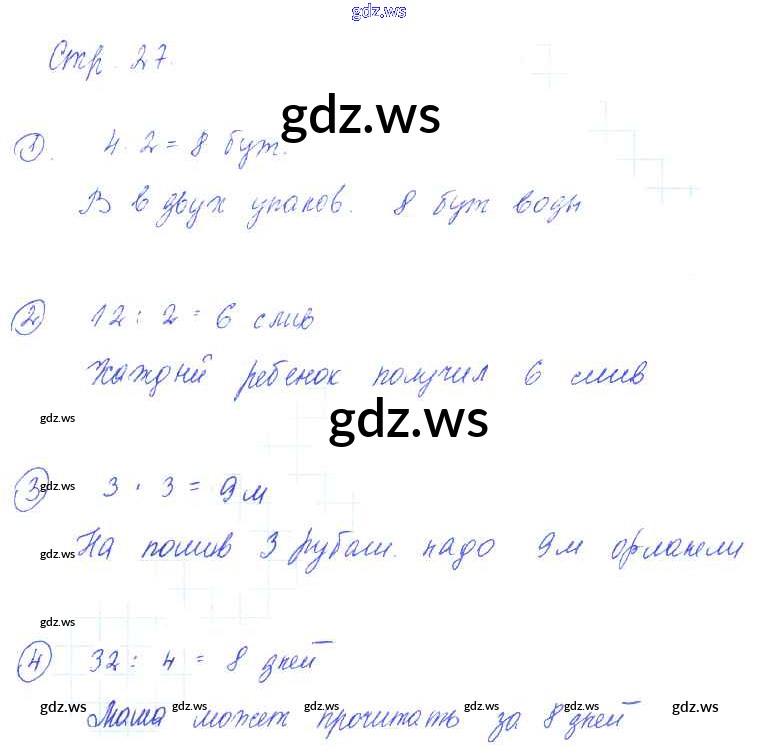 gdz.ws
Стр. 27.
gdz.ws
① 4 · 2 = 8 бут.
В в двух упаков. 8 бут воды
② 12 : 2 = 6 слив
Каждый ребенок получил 6 слив
gdz.ws gdz.ws
③ 3 · 3 = 9 м
gdz.ws
На пошив 3 рубаш. надо 9 м фланели
gdz.ws
gdz.ws
④ 32 : 4 = 8 дней
Маша может прочитать за 8 дней
gdz.ws gdz.ws gdz.ws gdz.ws gdz.ws